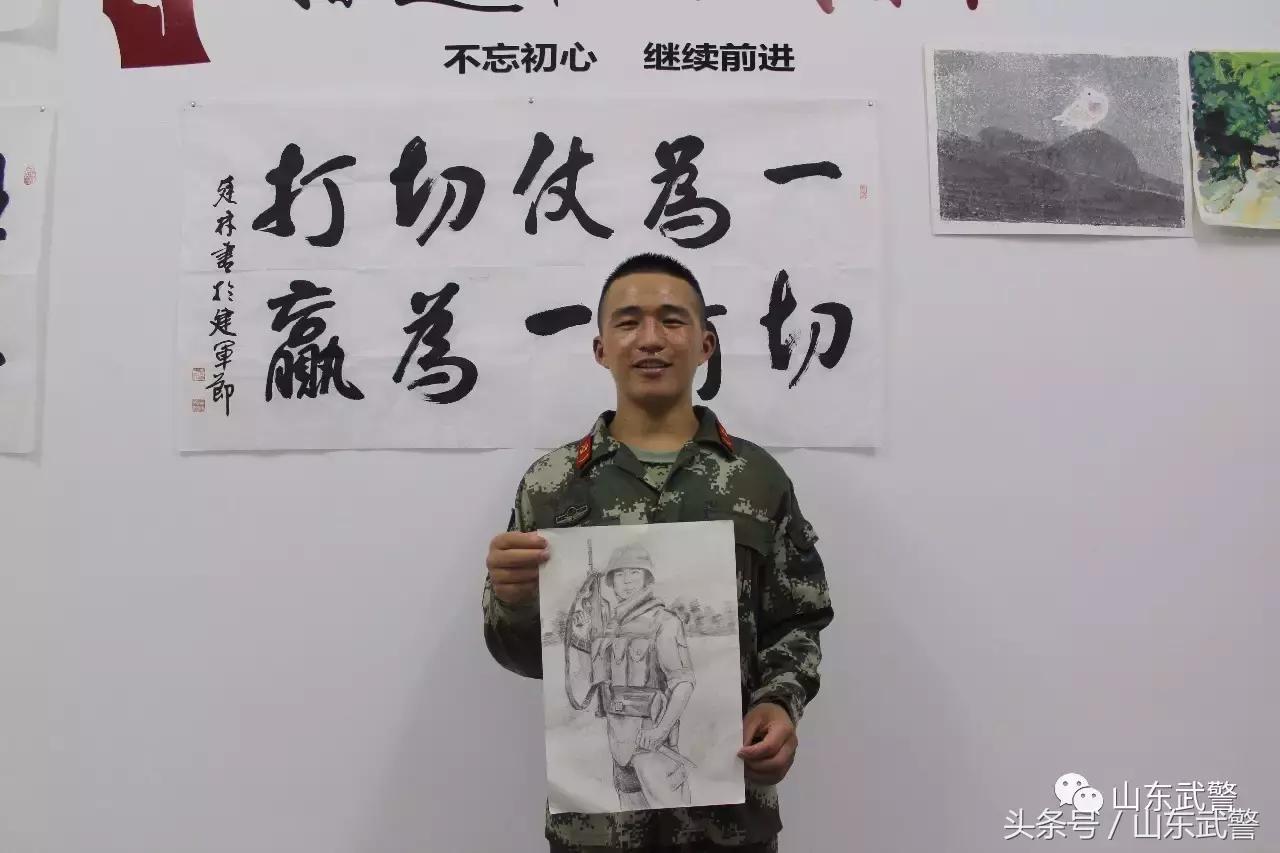 不忘初心 继续前进
一切
為打
仗一
切為
打贏
建林書於建軍節
山东武警
头条号 / 山东武警